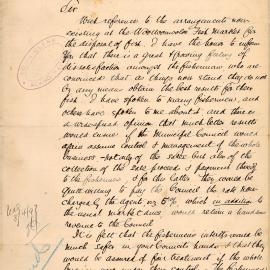 Sir
With reference to the arrangements now
existing at the Woolloomooloo Fish Market for
the disposal of fish, I have the honor to inform
you that there is a great & growing feeling of
dissatisfaction amongst the fishermen who are
convinced that as things now stand they do not
by any means obtain the best results for their
fish. I have spoken to many fishermen, and
others have spoken to me about it, and there is
a widespread opinion that much better results
would ensue if the Municipal Council would
again assume control & management of the whole
business - not only of the sales but also of the
collection of the sale proceeds & payment thereof
to the fishermen & for this latter they would be
quite willing to pay the Council the rate now
charged by the agents viz 5% which in addition to
the usual market dues, would return a handsome
revenue to the Council
It is felt that the fishermen's interests would be
much safer in your Council's hands & that they
would be assured of fair treatment if the whole